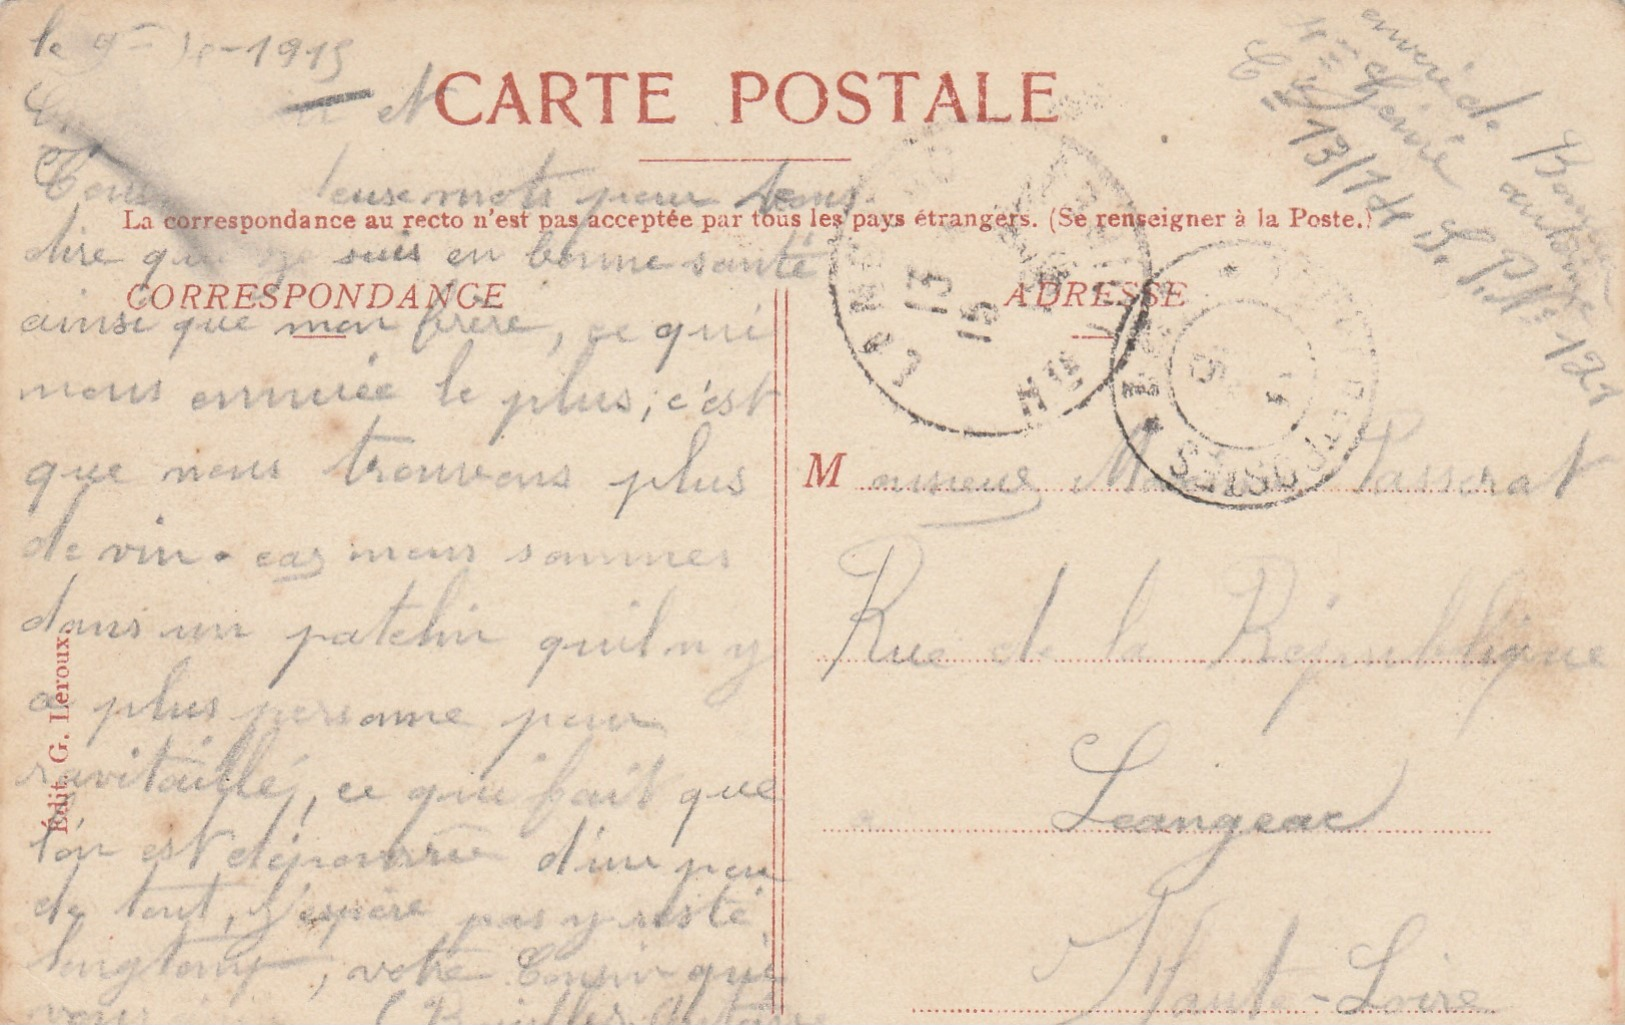 le 9 - 1915
CARTE POSTALE
mots pour
La correspondance au recto n'est pas acceptée par tous les pays étrangers. (Se renseigner à la Poste.)
dire que je suis en bonne santé
CORRESPONDANCE
ainsi que mon frère, ce qui
nous ennuiée le plus, c'est
que nous trouvons plus
de vin. car nous sommes
dans un patelin qu'il n y
a plus personne pour
ravitaillé, ce qui fait que
l'on est dépourvu d'un peu
de tout, j'espère pas y resté
longtemp, votre Cousin qui
vous
Édit. G. Leroux.
envoi de
Génie
13/14 S. P. N° 121
ADRESSE
Monsieur Passerat
Rue de la République
a Leangeac
Haute-Loire
13
15
POSTES